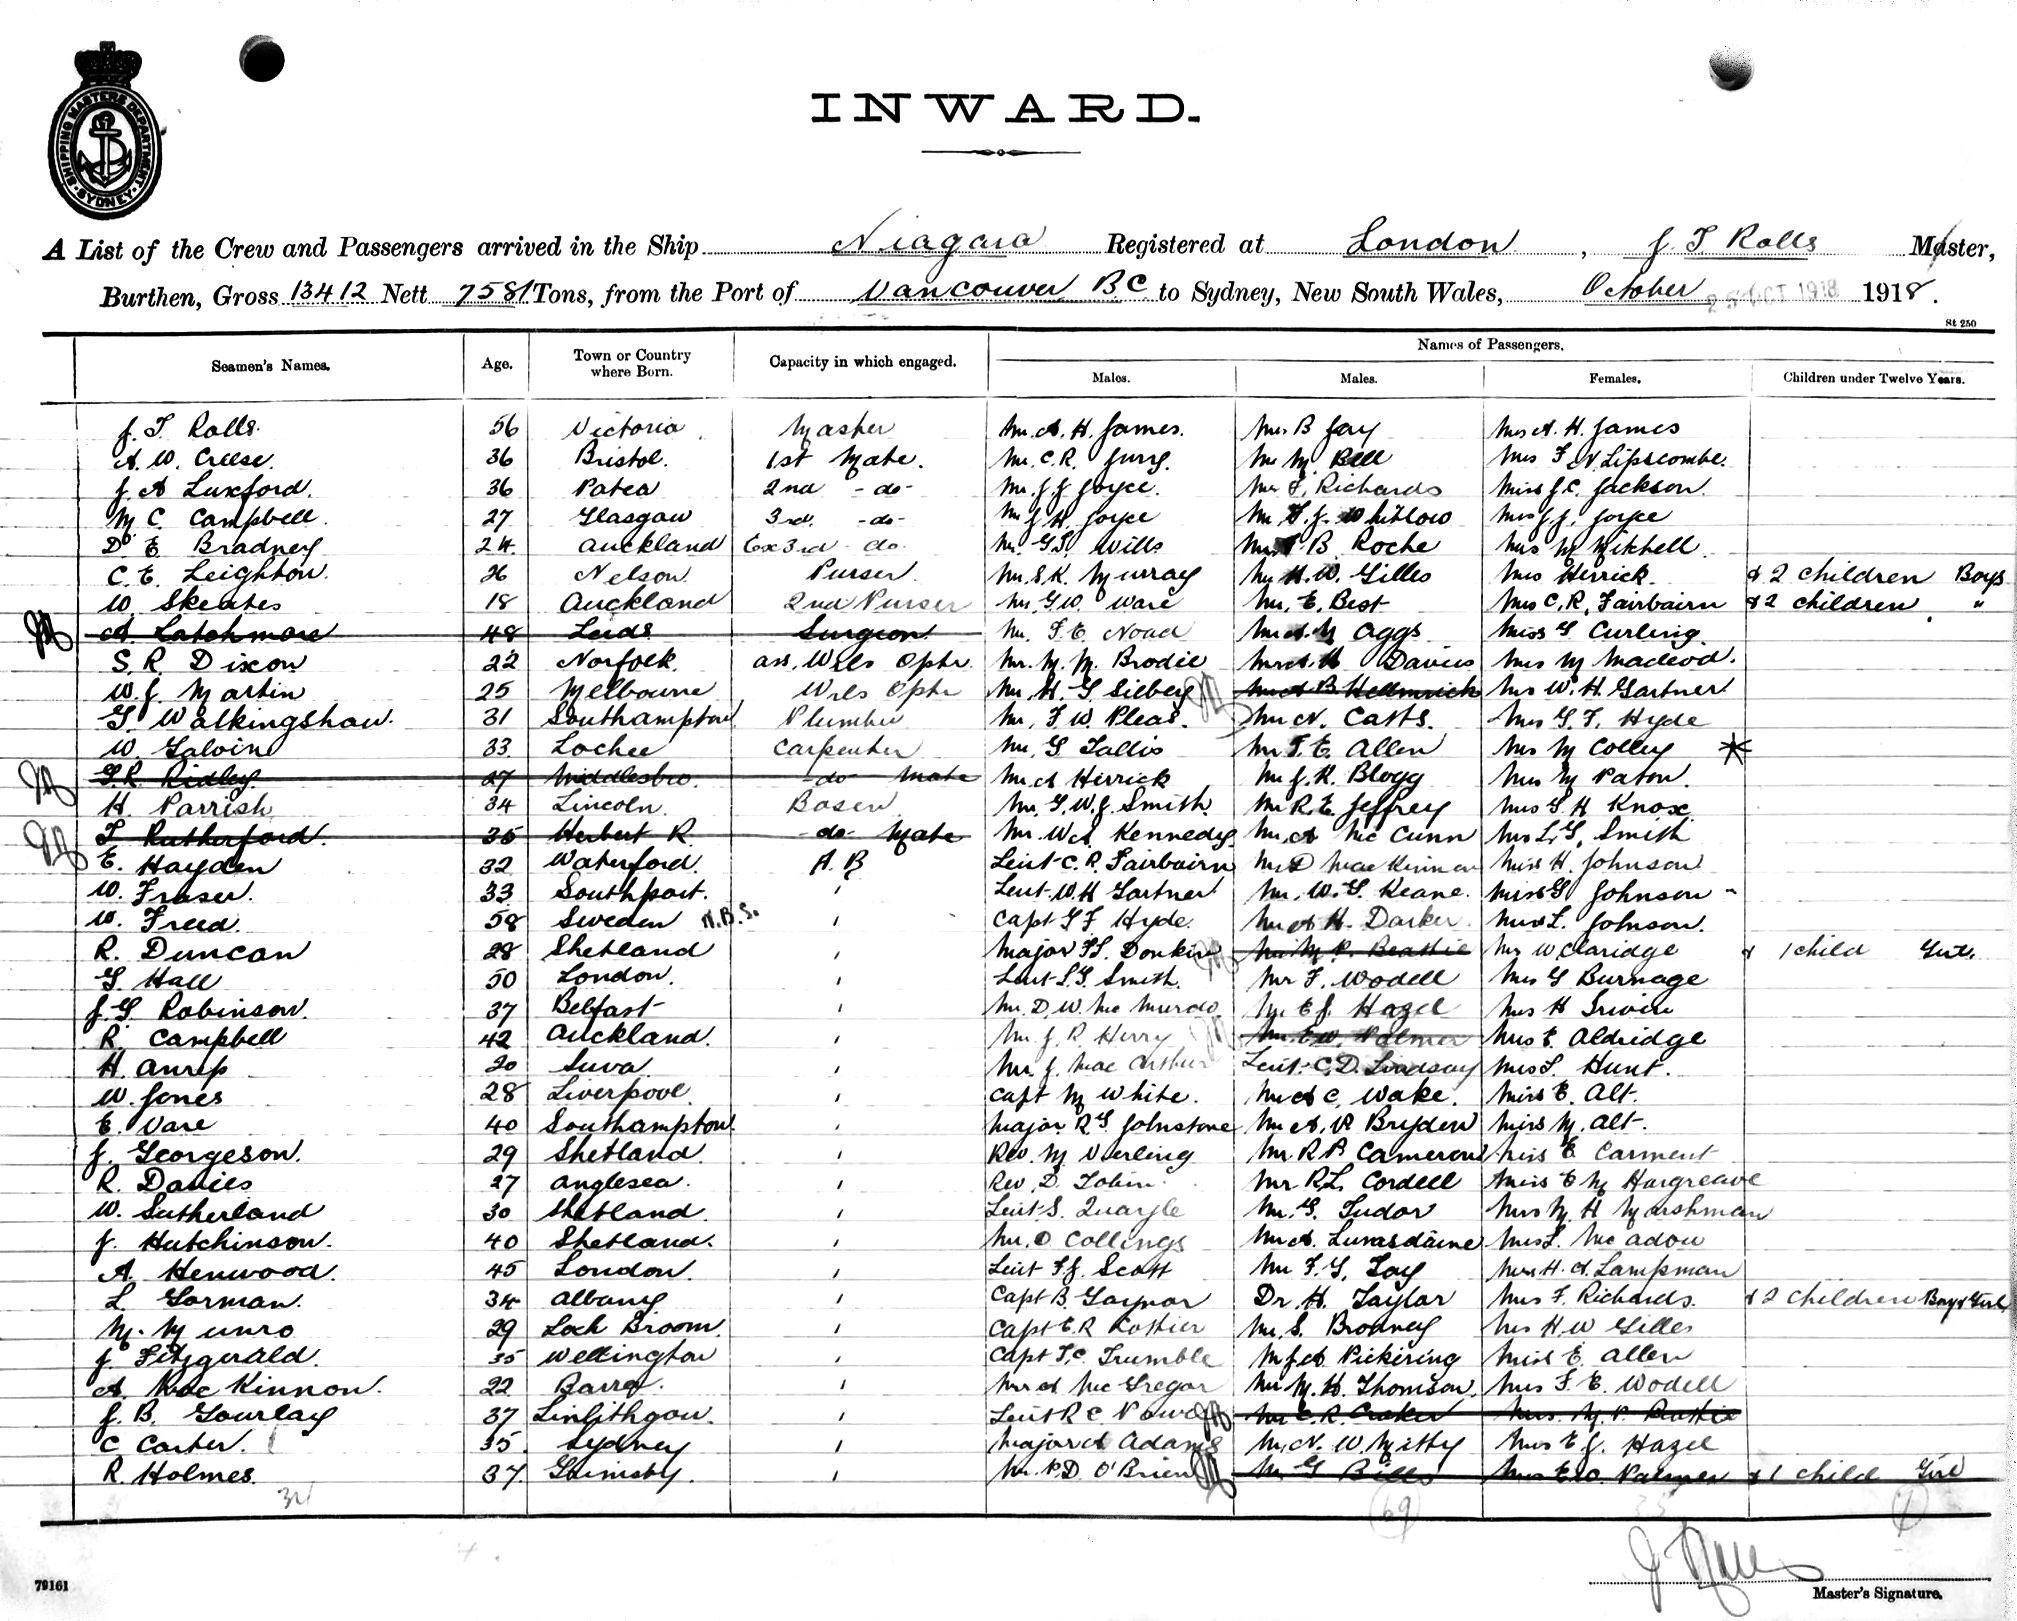 SHIPPING MASTERS DEPARTMENT · SYDNEY ·
INWARD.
A List of the Crew and Passengers arrived in the Ship Niagara Registered at London, J. T. Rolls Master,
Burthen, Gross 13412 Nett 7581 Tons, from the Port of Vancouver B.C. to Sydney, New South Wales, October 25 OCT 1918 1918.
St 250
Names of Passengers.
Seamen's Names. Age. Town or Country where Born. Capacity in which engaged. Males. Males. Females. Children under Twelve Years.
J. T. Rolls 56 Victoria Master Mr. A. H. James. Mr. B Jay Mrs A. H. James
A. W. Creese. 36 Bristol. 1st Mate. Mr. C. R. Mr M. Bell Mrs F. N. Lipscombe.
J. A Luxford. 36 Patea 2nd -do- Mr. J. J Joyce. Mr F. Richards Miss J. C. Jackson.
M C. Campbell. 27 Glasgow 3rd. -do- Mr J. H. Joyce Mr T. J. Whitlow Mrs J. J. Joyce
D. E. Bradney 24. Auckland Ex 3rd -do- Mr. G. S. Wills Mr B. Roche Mrs M Mitchell
C. E. Leighton. 26 Nelson. Purser. Mr. S. K. Murray Mr H. W. Gilles Mrs Herrick. & 2 children Boys
W. Skeates 18 Auckland 2nd Purser Mr. G. W. Ware Mr. E. Best Mrs C. R. Fairbairn & 2 children "
A. Latchmore 48 Leeds Surgeon Mr. F. E. Noad Mr A. M Aggs Miss G Curling.
S. R. Dixon 22 Norfolk. Ass. Wrls Optr. Mr. M. M. Brodie Mr A. H Davies Mrs M Macleod.
W. J. Martin 25 Melbourne Wrls Optr Mr. H. G Sieberg Mr A B Hellmrich Mrs W. H. Gartner
G. Walkingshaw. 31 Southampton Plumber Mr. F. W. Pleas. Mr N. Catts. Mrs G. F. Hyde
W. Galvin 33. Lochee Carpenter Mr. G Tallis Mr F. E. Allen Mrs M Colley
G. R. Ridley. 27 Middlesbro. do Mate Mr A Herrick Mr J. K. Blogg Mrs M Paton.
H. Parrish 34 Lincoln. Bosen Mr. G. W. J. Smith. Mr R. E. Jeffrey Mrs G. H Knox
T Rutherford. 35 Herbert R. do Mate Mr. W. A. Kennedy. Mr. A Mc Cunn Mrs L. G. Smith
E. Hayden 32 Waterford. A. B Lieut C. R. Fairbairn Mr D Mac Kinnon Miss H. Johnson
W. Fraser. 33 Southport. ' Lieut W. H Gartner Mr. W. G. Keane. Miss G Johnson
W. Freed. 58 Sweden N.B.S. ' Capt G F Hyde. Mr A H. Darker. Miss L. Johnson.
R. Duncan 28 Shetland ' Major F S. Donkin Mr M. P. Beattie Mrs W Claridge & 1 child Girl.
G Hall 50 London. ' Lieut L. G. Smith. Mr F. Wodell Mrs G Burnage
J. G. Robinson. 37 Belfast ' Mr. D. W. Mc Murdo. Mr E J. Hazel Mrs H Irwin
R. Campbell 42 Auckland. ' Mr. J. R. Herry Mr. E. W. Palmer Mrs E. Aldridge
H. 20 Suva. ' Mr. J. Mac Arthur Lieut C. D. Lindsay Mrs L. Hunt.
W. Jones 28 Liverpool. ' Capt M White. Mr A C. Wake. Miss E. Alt.
E. Vare 40 Southampton. ' Major R G Johnstone Mr A. V. Bryden Miss M. Alt.
J. Georgeson. 29 Shetland. ' Rev. M Vierling Mr. R B Cameron Miss E Carment
R. Davies 27 Anglesea. ' Rev. D. Tobin. Mr R. L. Cordell Miss E M Hargreave
W. Sutherland 30 Shetland. ' Lieut S. Quayle Mr. G. Tudor Mrs M. H Marshman
J. Hutchinson. 40 Shetland. ' Mr. O Collings Mr A. Lumsdaine Mrs L. Mc Adow
A. Henwood. 45 London. ' Lieut F. J. Scott Mr F. G. Loy Mrs H. A. Lampman
L. Gorman. 34 Albany. ' Capt B. Gaynor Dr. H. Taylor Mrs F. Richards. & 2 children Boy & Girl
M. Munro 29 Loch Broom. ' Capt E. R. Mr. S. Brodney Mrs H W Gilles
J. Fitzgerald. 35 Wellington ' Capt T. C. Trumble Mr J. A Pickering Miss E. Allen
A. Mac Kinnon. 22 Barra. ' Mr A Mc Gregor Mr M. H. Thomson. Mrs F. E. Wodell
J. B. Gourlay 37 Linlithgow. ' Lieut R. C Mr C. R. Croker Mrs. M. P. Beattie
C Carter. 35 Sydney ' Major A Adams Mr. N. W. Mitty Mrs E. J. Hazel
R. Holmes. 37. Grimsby. ' Mr. P. D. O'Brien Mr G Bills Mrs E. W. Palmer & 1 child Girl
34 69 33 7
79161
Master's Signature.